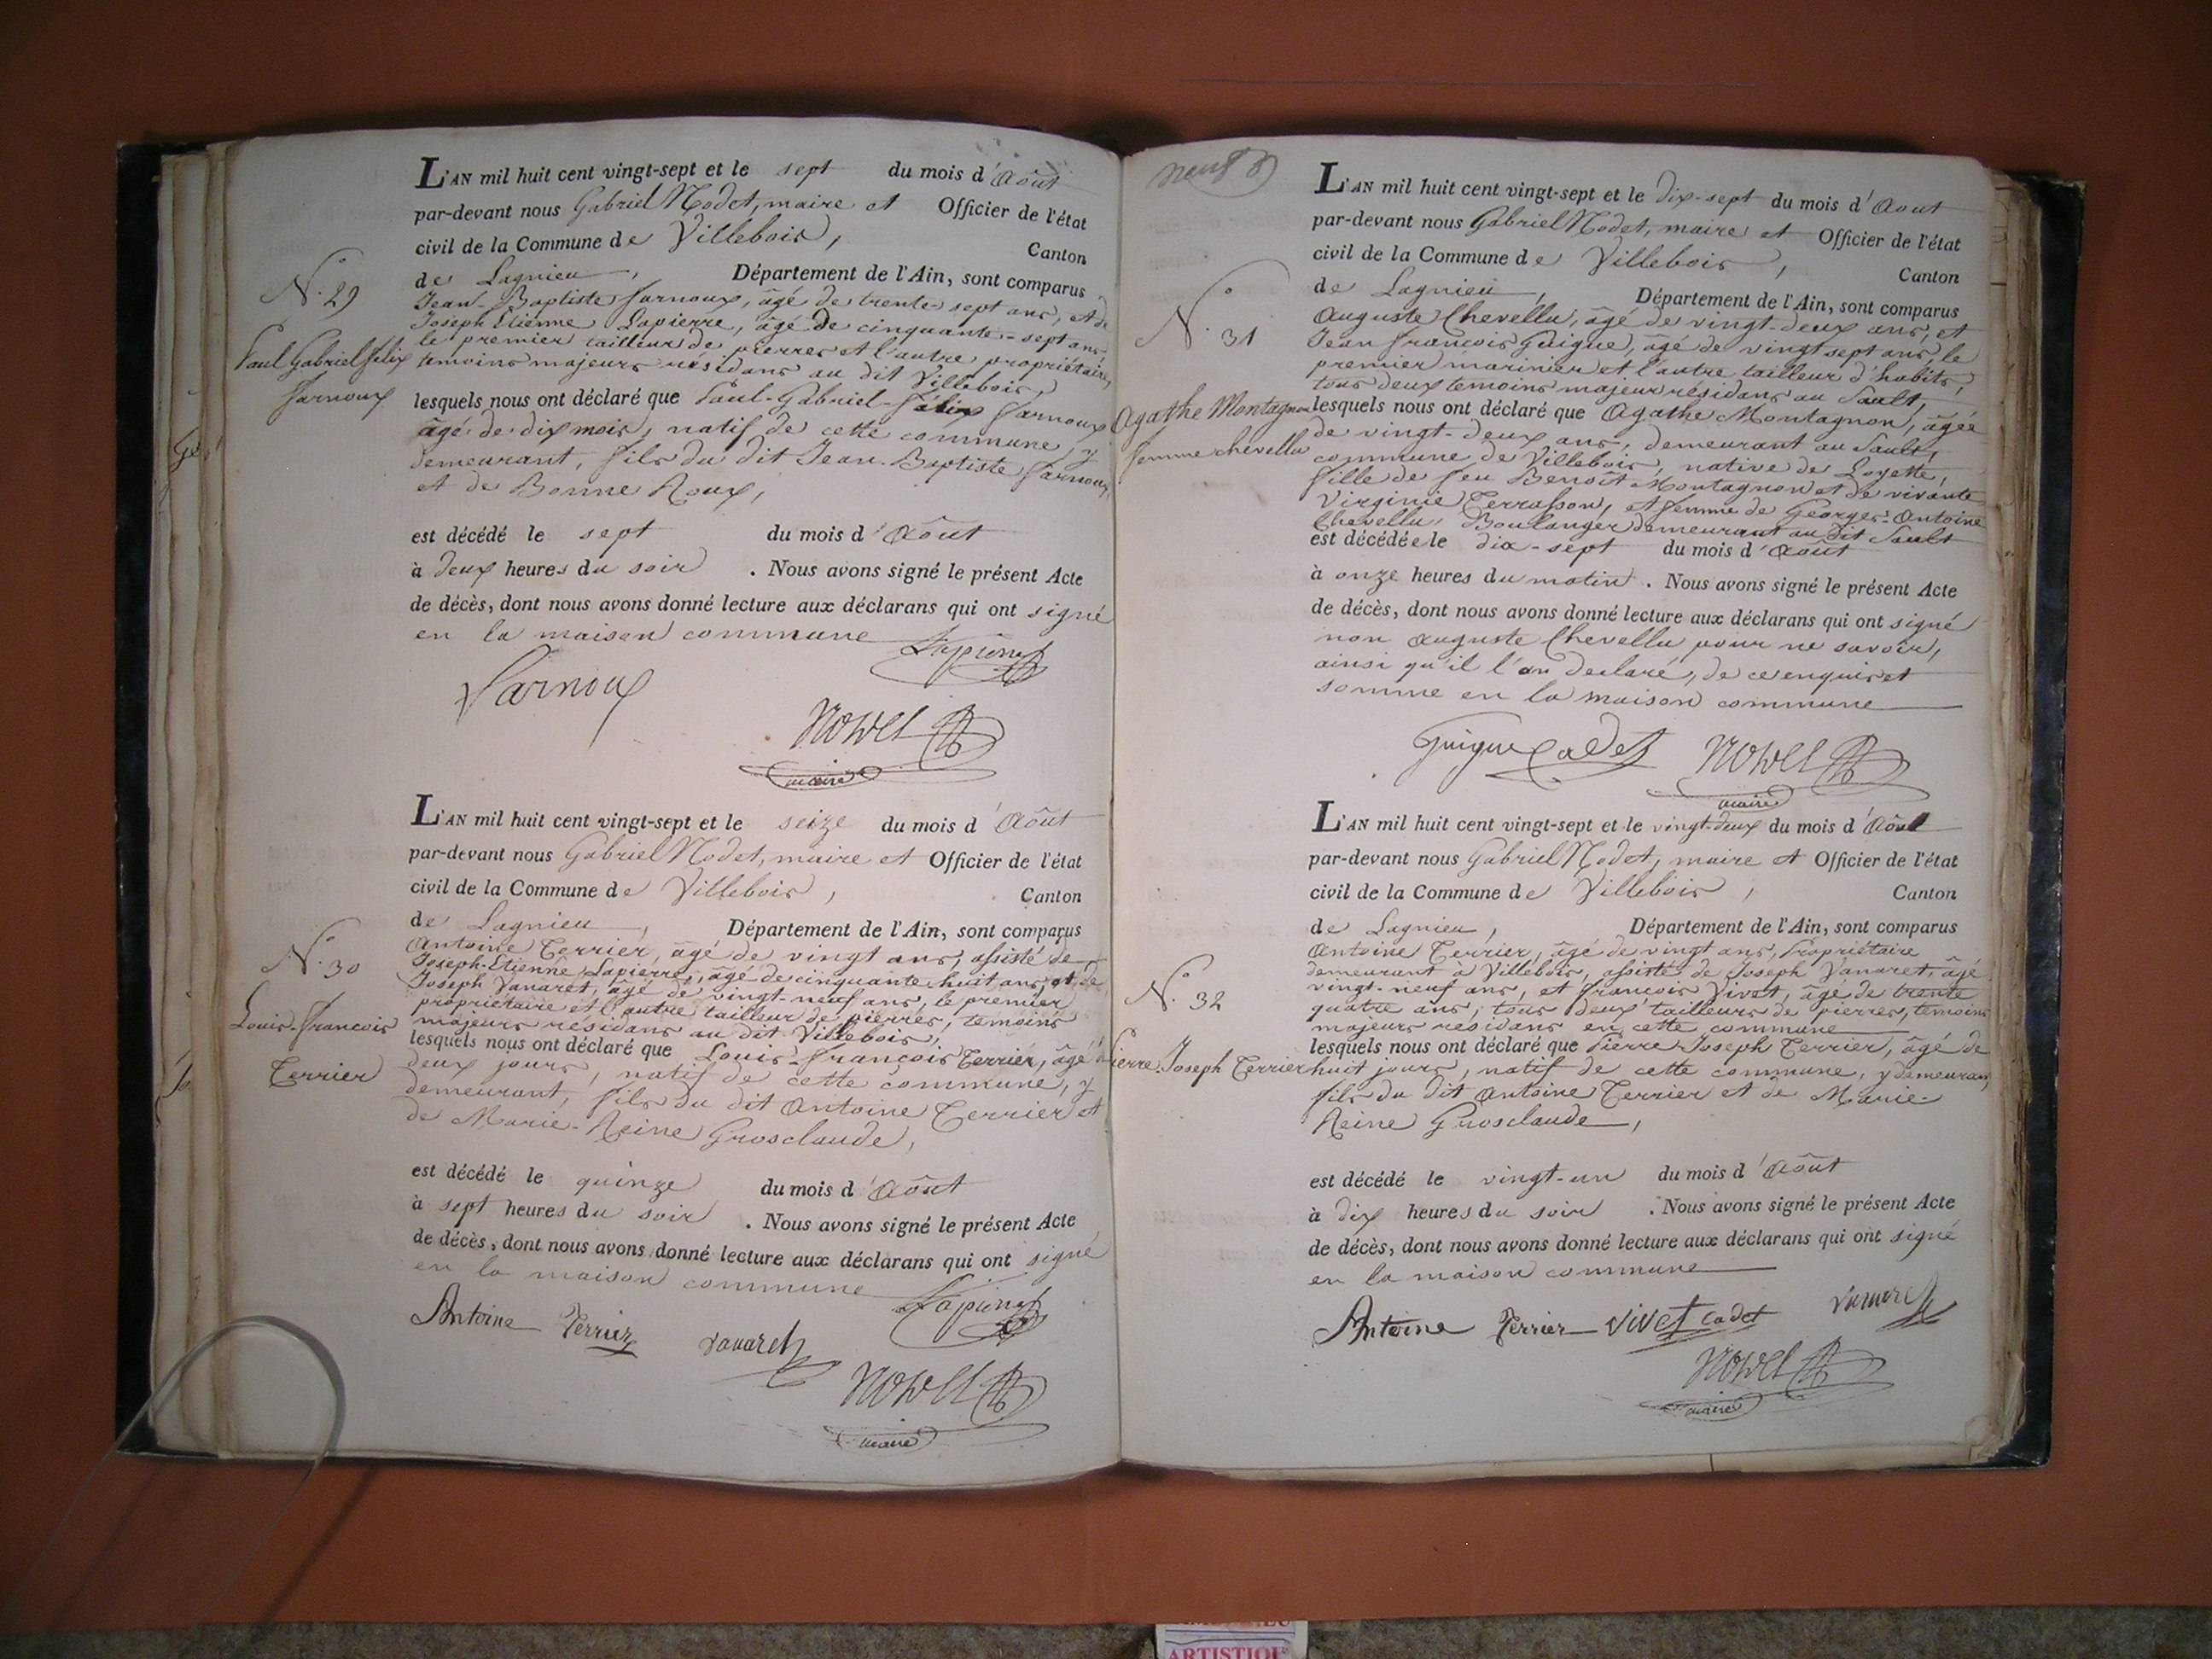 L'AN mil huit cent vingt-sept et le sept du mois d'Août
par-devant nous Gabriel Nodet, maire et Officier de l'état
civil de la Commune de Villebois, Canton
de Lagnieu, Département de l'Ain, sont comparus
Jean-Baptiste Sarnoux, âgé de trente-sept ans, et de
Joseph Etienne Lapierre, âgé de cinquante-sept ans,
le premier tailleur de pierres et l'autre propriétaire,
temoins majeurs résidans au dit Villebois,
lesquels nous ont déclaré que Paul-Gabriel-Félix Sarnoux
âgé de dix mois, natif de cette commune, y
demeurant, fils du dit Jean-Baptiste Sarnoux,
et de Bonne Roux,
est décédé le sept du mois d'Août
à deux heures du soir. Nous avons signé le présent Acte
de décès, dont nous avons donné lecture aux déclarans qui ont signé
en la maison commune
Lapierre
Sarnoux
Nodet
maire
N.° 29
Paul Gabriel félix
Sarnoux
L'AN mil huit cent vingt-sept et le seize du mois d'Août
par-devant nous Gabriel Nodet, maire et Officier de l'état
civil de la Commune de Villebois, Canton
de Lagnieu, Département de l'Ain, sont comparus
Antoine Terrier, âgé de vingt ans, assisté de
Joseph-Etienne Lapierre, âgé de cinquante huit ans, et de
Joseph Vanaret, âgé de vingt-neuf ans, le premier
propriétaire et l'autre tailleur de pierres, temoins
majeurs résidans au dit Villebois,
lesquels nous ont déclaré que Louis-François Terrier, âgé de
deux jours, natif de cette commune, y
demeurant, fils du dit Antoine Terrier et
de Marie-Reine Grosclaude,
est décédé le quinze du mois d'Août
à sept heures du soir. Nous avons signé le présent Acte
de décès, dont nous avons donné lecture aux déclarans qui ont signé
en la maison commune
Lapierre
Antoine Terrier vanaret
Nodet
maire
N.° 30
Louis-francois
Terrier
neuf
L'AN mil huit cent vingt-sept et le dix-sept du mois d'Aout
par-devant nous Gabriel Nodet, maire et Officier de l'état
civil de la Commune de Villebois, Canton
de Lagnieu, Département de l'Ain, sont comparus
Auguste Chevellu, âgé de vingt-deux ans, et
Jean francois Guigue, âgé de vingt sept ans, le
premier marinier et l'autre tailleur d'habits,
tous deux temoins majeur résidans au Sault,
lesquels nous ont déclaré que Agathe Montagnon, âgée
de vingt-deux ans, demeurant au Sault,
commune de Villebois, native de Loyette,
fille de feu Benoît Montagnon et de vivante
Virginie Terrasson, et femme de Georges-Antoine
Chevellu, Boulanger demeurant au dit Sault
est décédée le dix-sept du mois d'Août
à onze heures du matin. Nous avons signé le présent Acte
de décès, dont nous avons donné lecture aux déclarans qui ont signé
non Auguste Chevellu pour ne savoir,
ainsi qu'il l'an declaré, de ce enquis et
somme en la maison commune
Guigue Cadet Nodet
maire
N.° 31
Agathe Montagnon
femme chevellu
L'AN mil huit cent vingt-sept et le vingt-deux du mois d'Août
par-devant nous Gabriel Nodet, maire et Officier de l'état
civil de la Commune de Villebois, Canton
de Lagnieu, Département de l'Ain, sont comparus
Antoine Terrier, âgé de vingt ans, Propriétaire
demeurant à Villebois, assisté de Joseph Vanaret, âgé
vingt-neuf ans, et François Vivet, âgé de trente
quatre ans, tous deux tailleurs de pierres, temoins
majeurs residans en cette commune
lesquels nous ont déclaré que Pierre-Joseph Terrier, âgé de
huit jours, natif de cette commune, y demeurant,
fils du dit Antoine Terrier et de Marie-
Reine Grosclaude,
est décédé le vingt-un du mois d'Août
à dix heures du soir. Nous avons signé le présent Acte
de décès, dont nous avons donné lecture aux déclarans qui ont signé
en la maison commune
Antoine Terrier vivet cadet vanaret
Nodet
maire
N.° 32
Pierre Joseph Terrier
ARTISTIQU